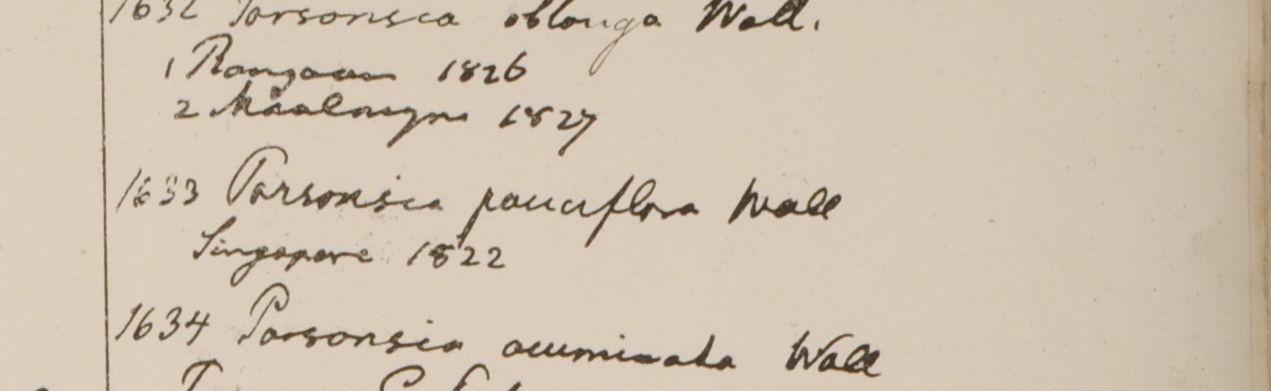 1632 Parsonsia oblonga Wall.
1 Rangoon 1826
2 Maalmyne 1827
1633 Parsonsia pauciflora Wall
Singapore 1822
1634 Parsonsia acuminata Wall